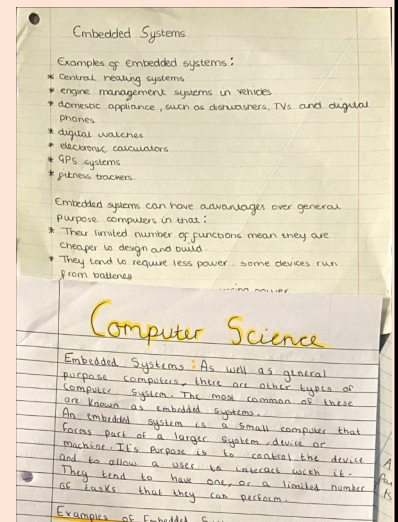 Embedded Systems
Examples of embedded systems:
* central heating systems
* engine management systems in vehicles
* domestic appliance, such as dishwashers, TVs and digital
phones
* digital watches
* electronic calculators
* GPS systems
* fitness trackers.
Embedded systems can have advantages over general
purpose computers in that:
* Their limited number of functions mean they are
cheaper to design and build.
* They tend to require less power. some devices run
from batteries
Computer Science
Embedded Systems: As well as general
purpose computers, there are other types of
Computer System. The most common of these
are known as embedded systems.
An embedded system is a small computer that
forms part of a larger system, device or
machine. It's purpose is to control the device
and to allow a user to interact with it.
They tend to have one, or a limited number
of tasks that they can perform.
Examples of Embedded